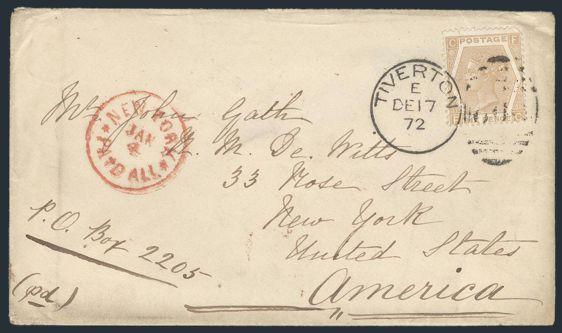 C POSTAGE F
TIVERTON
E
DE 17
72
NEW YORK
JAN
PAID ALL
Mr. John Gath
M. De. Witts
33 Rose Street
New York
United States
America
P.O. Box 2205
(pd)